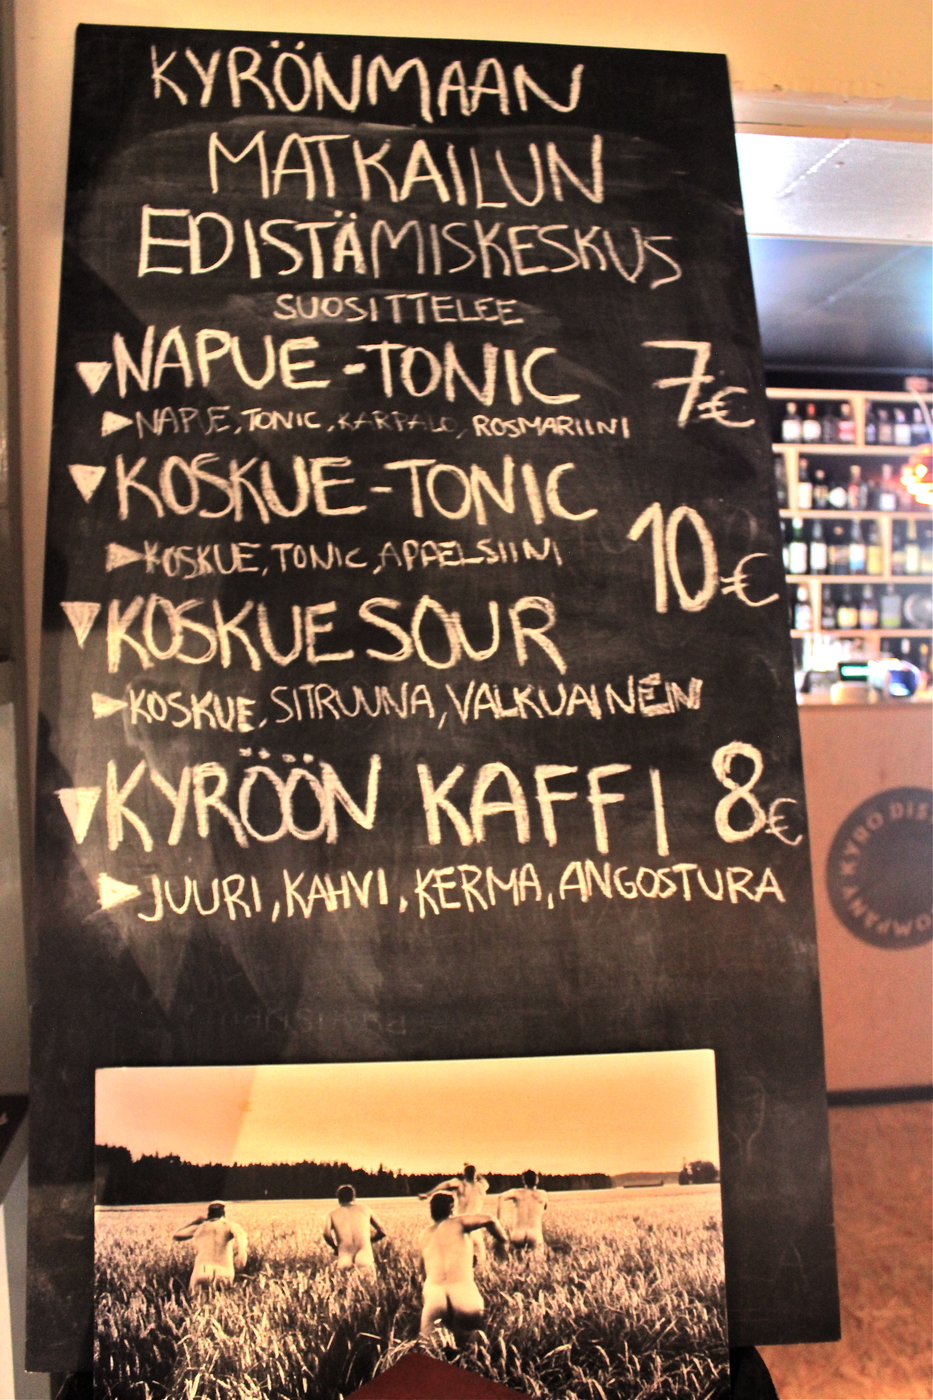 KYRÖNMAAN
MATKAILUN
EDISTÄMISKESKUS
SUOSITTELEE
NAPUE-TONIC 7€
NAPUE, TONIC, KARPALO, ROSMARIINI
KOSKUE-TONIC
10€
KOSKUE, TONIC, APPELSIINI
KOSKUE SOUR
KOSKUE, SITRUUNA, VALKUAINEN
KYRÖÖN KAFFI 8€
JUURI, KAHVI, KERMA, ANGOSTURA
KYRO DIS
OMPANY